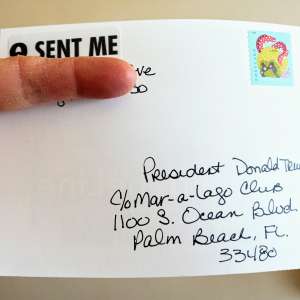 SENT ME
President Donald
C/o Mar-a-Lago Club
1100 S. Ocean Blvd.
Palm Beach, FL.
33480